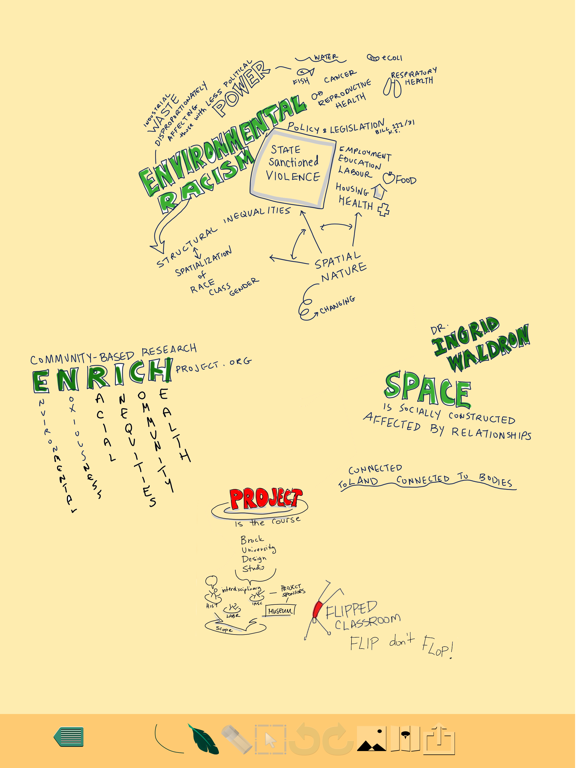 INDUSTRIAL
WASTE
DISPROPORTIONATELY
AFFECTING
those with LESS POLITICAL
POWER
WATER
eCOLI
FISH
CANCER
REPRODUCTIVE
HEALTH
RESPIRATORY
HEALTH
ENVIRONMENTAL
RACISM
POLICY & LEGISLATION
BILL 111/31
STATE
Sanctioned
VIOLENCE
EMPLOYMENT
EDUCATION
LABOUR
FOOD
HOUSING
HEALTH
STRUCTURAL INEQUALITIES
SPATIALIZATION
of
RACE
CLASS
GENDER
SPATIAL
NATURE
CHANGING
DR.
INGRID
WALDRON
COMMUNITY-BASED RESEARCH
ENRICH PROJECT.ORG
ENVIRONMENTAL
NOXIOUSNESS
RACIAL
INEQUITIES
COMMUNITY
HEALTH
SPACE
IS SOCIALLY CONSTRUCTED
AFFECTED BY RELATIONSHIPS
CONNECTED
TO LAND CONNECTED TO BODIES
PROJECT
is the course
Brock
University
Design
Studio
Interdisciplinary
PROJECT
SPONSORS
HIST
MUSEUM
Scope
FLIPPED
CLASSROOM
FLIP don't FLOP!